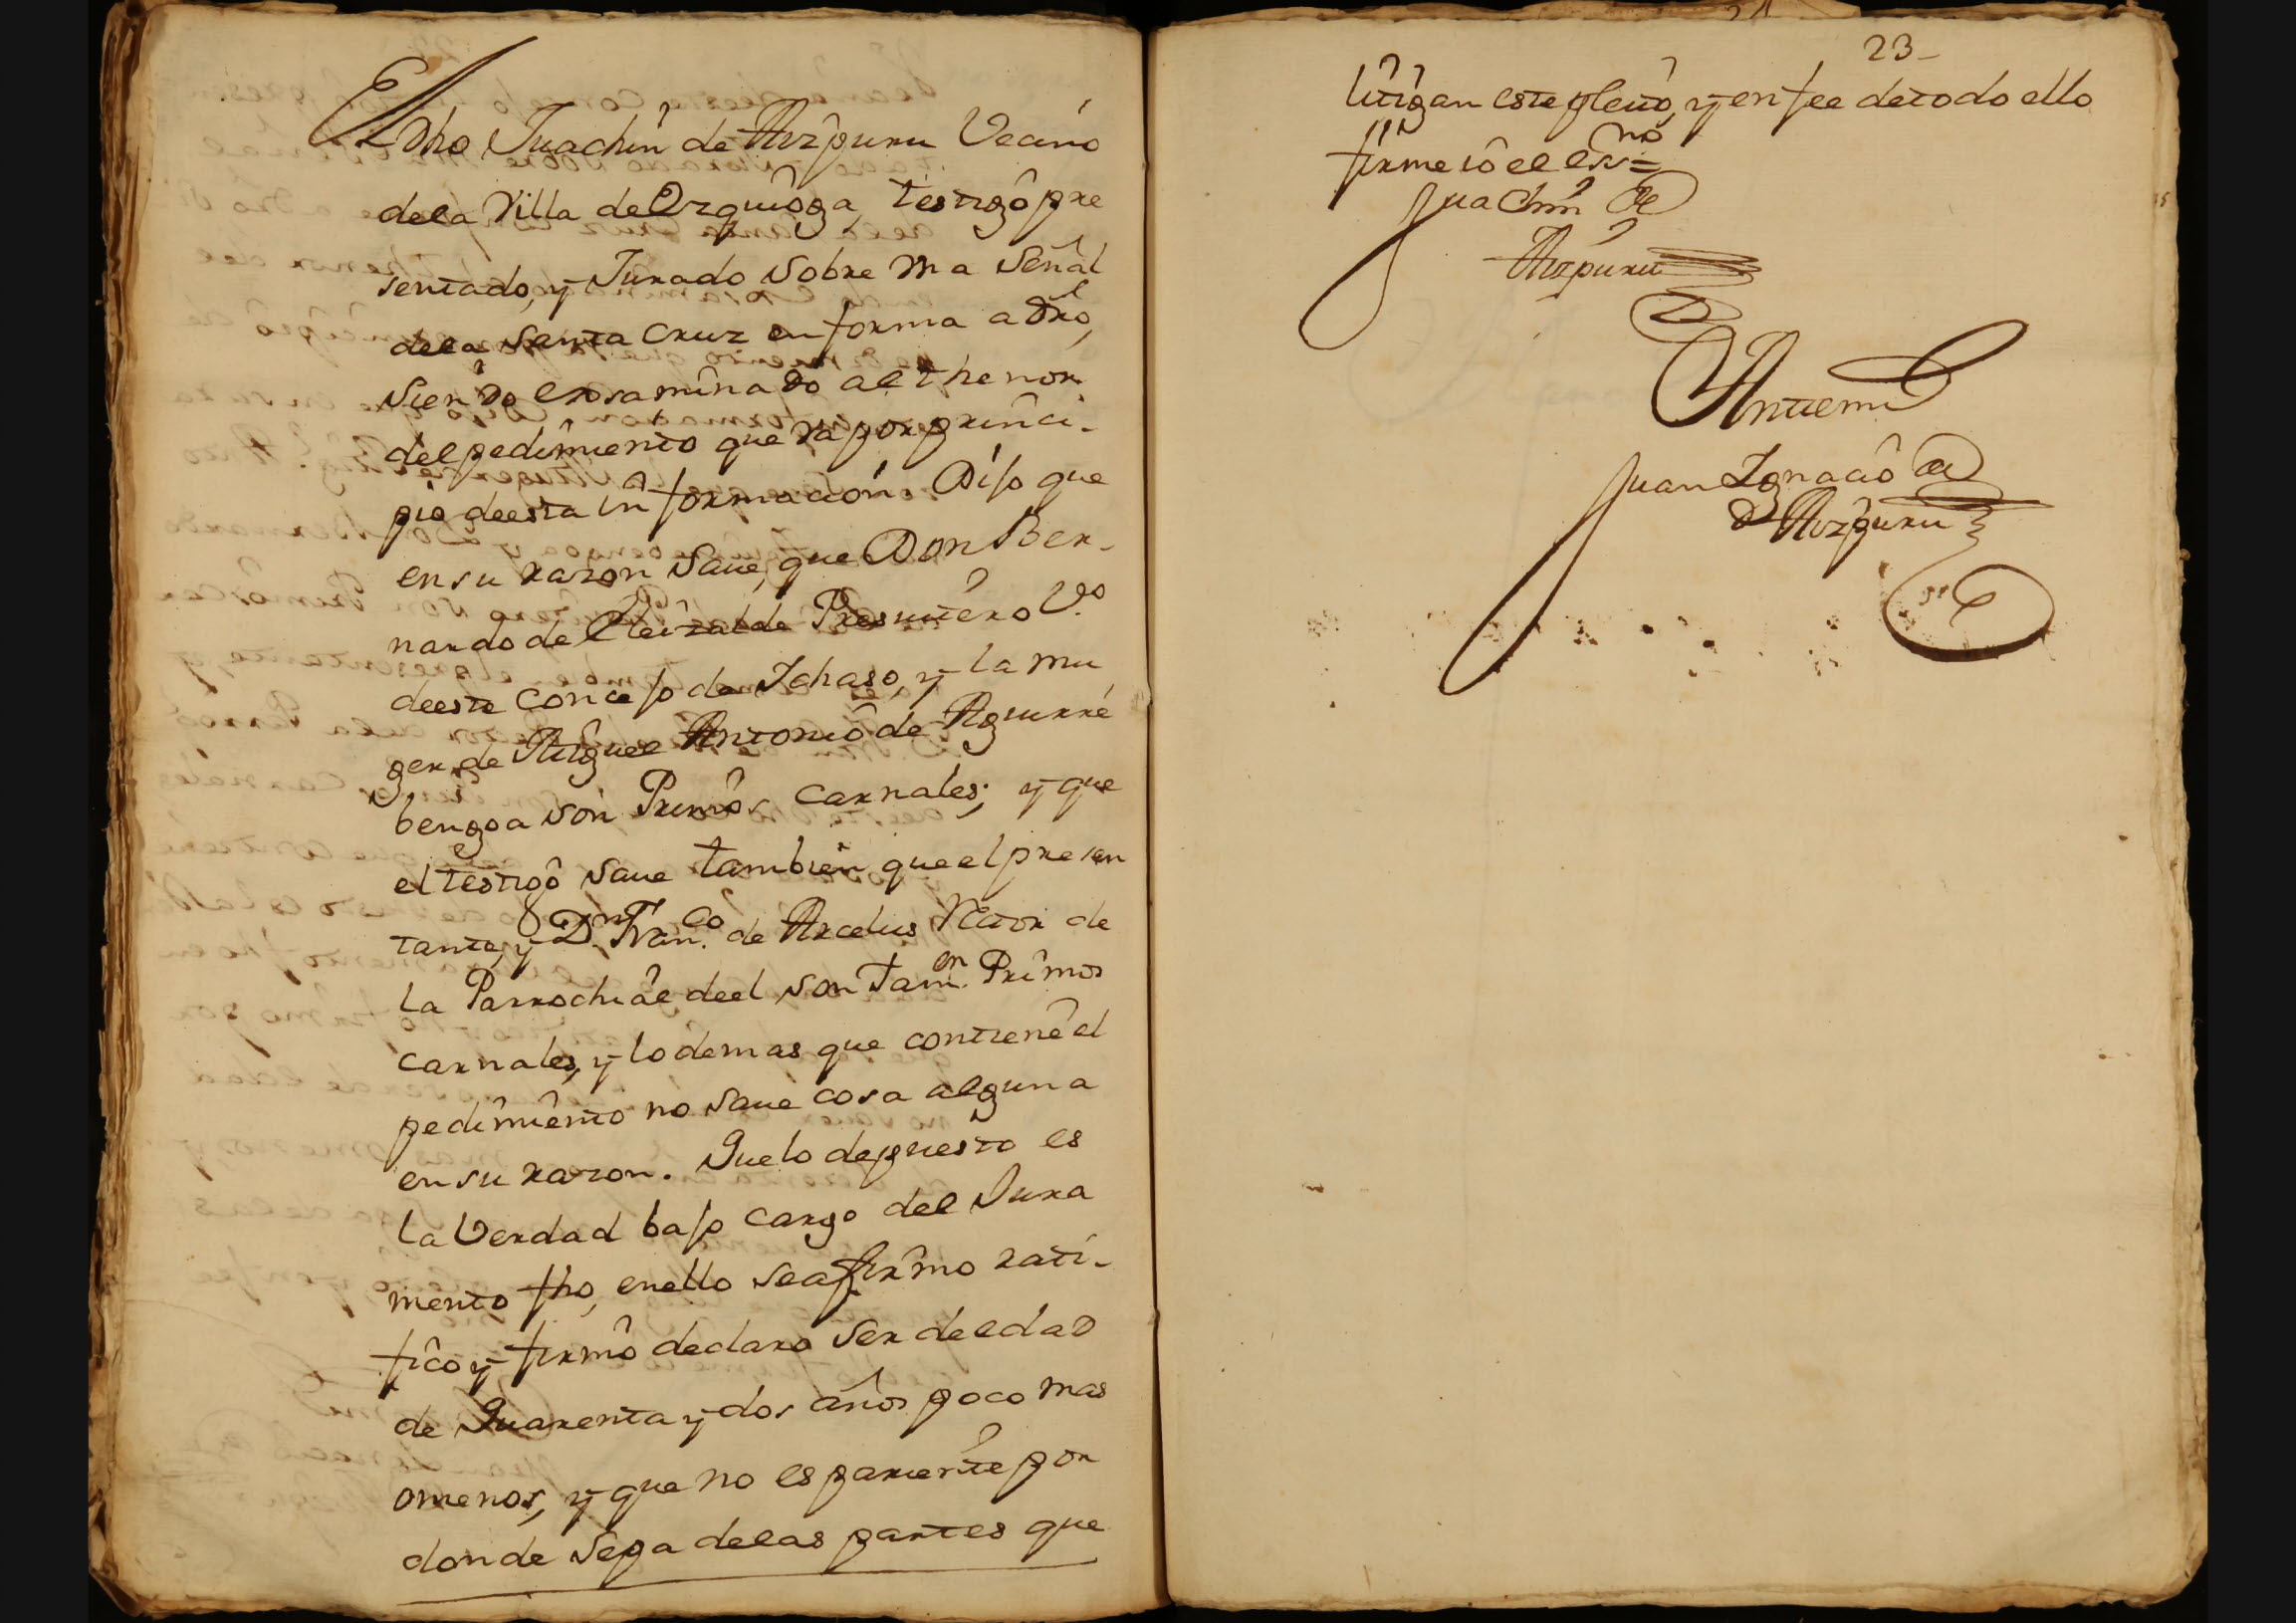 El dho Juachin de Aizpuru Vecino
dela Villa de Ezquioga, testigo pre
sentado, y Jurado sobre Una señal
dela Santa Cruz en forma a dro,
siendo exsaminado al thenor
del pedimiento que va por princi-
pio deesta informacion Dijo que
en su razon save, que Don Ber-
nardo de Eleizalde Presvitero Vº
deeste concejo de Ichaso, y la mu
ger de Miguel Antonio de Aguirre
bengoa son Primos carnales; y que
el testigo save tambien que el presen
tante, y Dn Franco de Arcelus Retor de
la Parrochiâl deel son Tamen Primos
carnales, y lo demas que contiene el
pedimiento no save cosa alguna
en su razon. Que lo depuesto es
la Verdad bajo cargo del Jura
mento fho, en ello se afirmo rati-
fico y firmô declaro ser de edad
de Quarenta y dos años poco mas
o menos, y que no es pariente por
donde sepa de las partes que
23-
litigan este pleito, y en fee de todo ello
firme io el essno=
Juachin de
Aizpuru
Antemi
Juan Ignacio de
Aizpuru